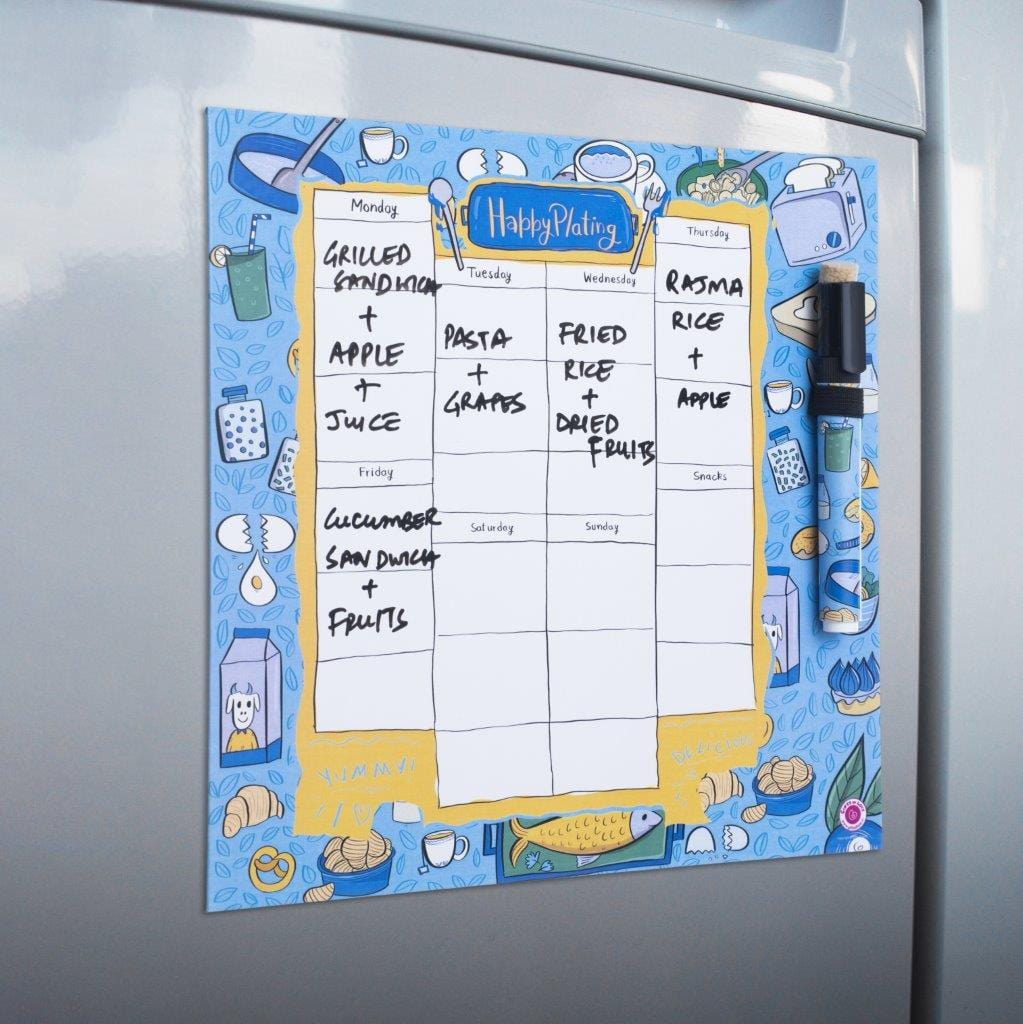 HappyPlating
Monday
GRILLED
SANDWICH
+
APPLE
+
JUICE
Tuesday
PASTA
+
GRAPES
Wednesday
FRIED
RICE
+
DRIED
FRUITS
Thursday
RAJMA
RICE
+
APPLE
Friday
CUCUMBER
SANDWICH
+
FRUITS
Saturday
Sunday
Snacks
YUMMY!
DELICIOUS